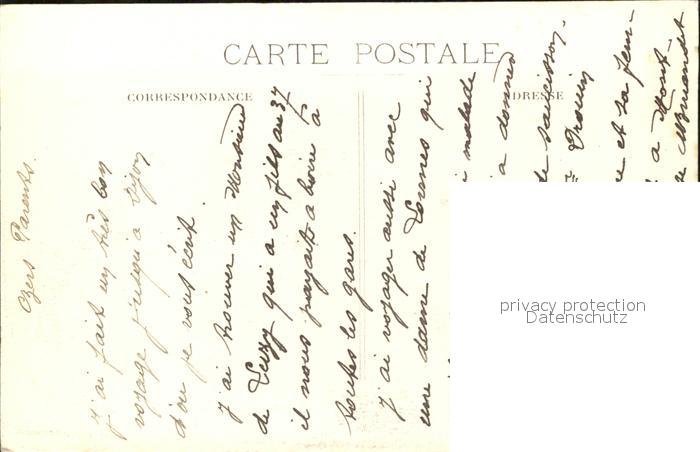 CARTE POSTALE
CORRESPONDANCE
ADRESSE
Chers Parents.
J'ai fait un très bon
voyage jusqu'a Dijon
d'ou je vous écrit.
J'ai trouver un Monsieur
de qui a un fils au 37
il nous payait a boire à
toutes les gares.
J'ai voyager aussi avec
une dame de qui
malade
a donner
de saucisson.
et sa fem-
a Mont-
privacy protection
Datenschutz